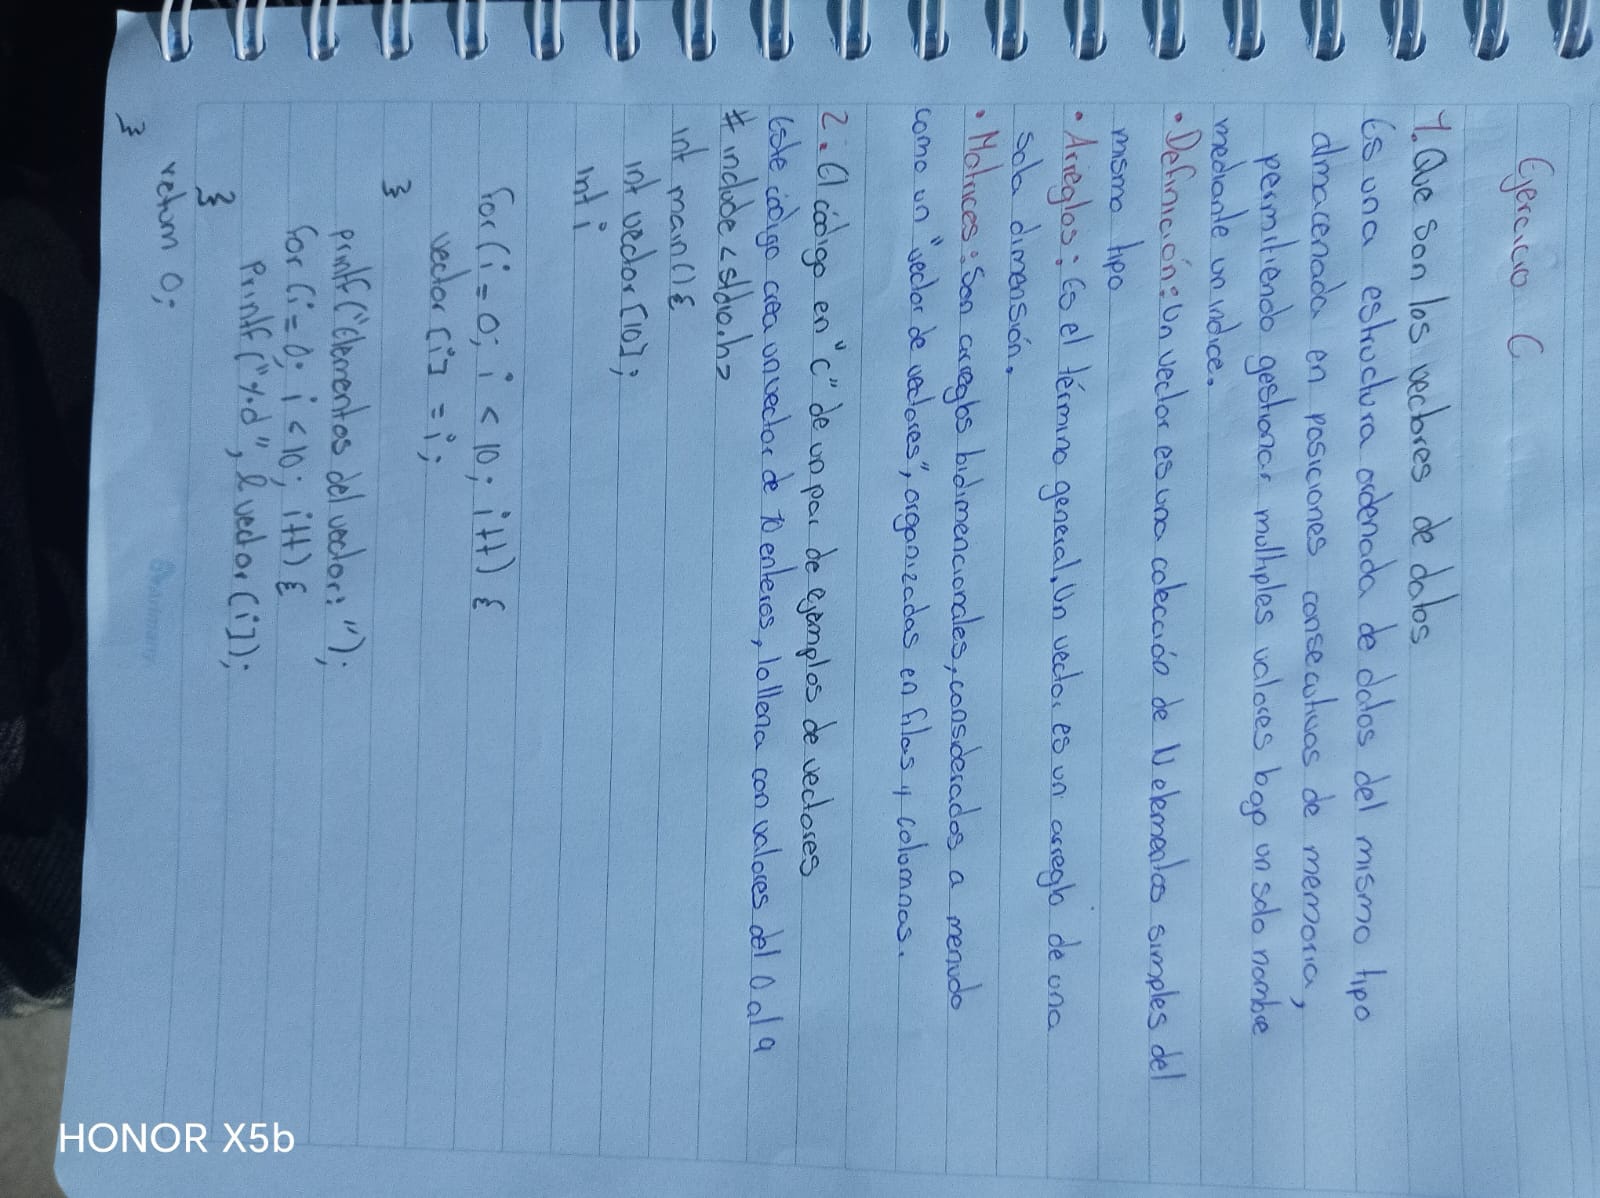 Ejercicio C
1. Que son los vectores de datos
Es una estructura ordenada de datos del mismo tipo
almacenada en posiciones consecutivas de memoria,
permitiendo gestionar multiples valores bajo un solo nombre
mediante un indice.
• Definición: Un vector es una colección de N elementos simples del
mismo tipo
• Arreglos: Es el término general. Un vector es un arreglo de una
sola dimensión.
• Matrices: Son arreglos bidimencionales, considerados a menudo
como un "vector de vectores", organizados en filas y columnas.
2. El código en "c" de un par de ejemplos de vectores
Este código crea un vector de 10 enteros, lo llena con valores del 0 al 9
# include <stdio.h>
int main(){
int vector [10];
int i
for (i = 0; i < 10; i++) {
vector [i] = i;
}
printf ("Elementos del vector: ");
for (i = 0; i < 10; i++) {
printf ("%d", & vector [i]);
}
return 0;
}
HONOR X5b